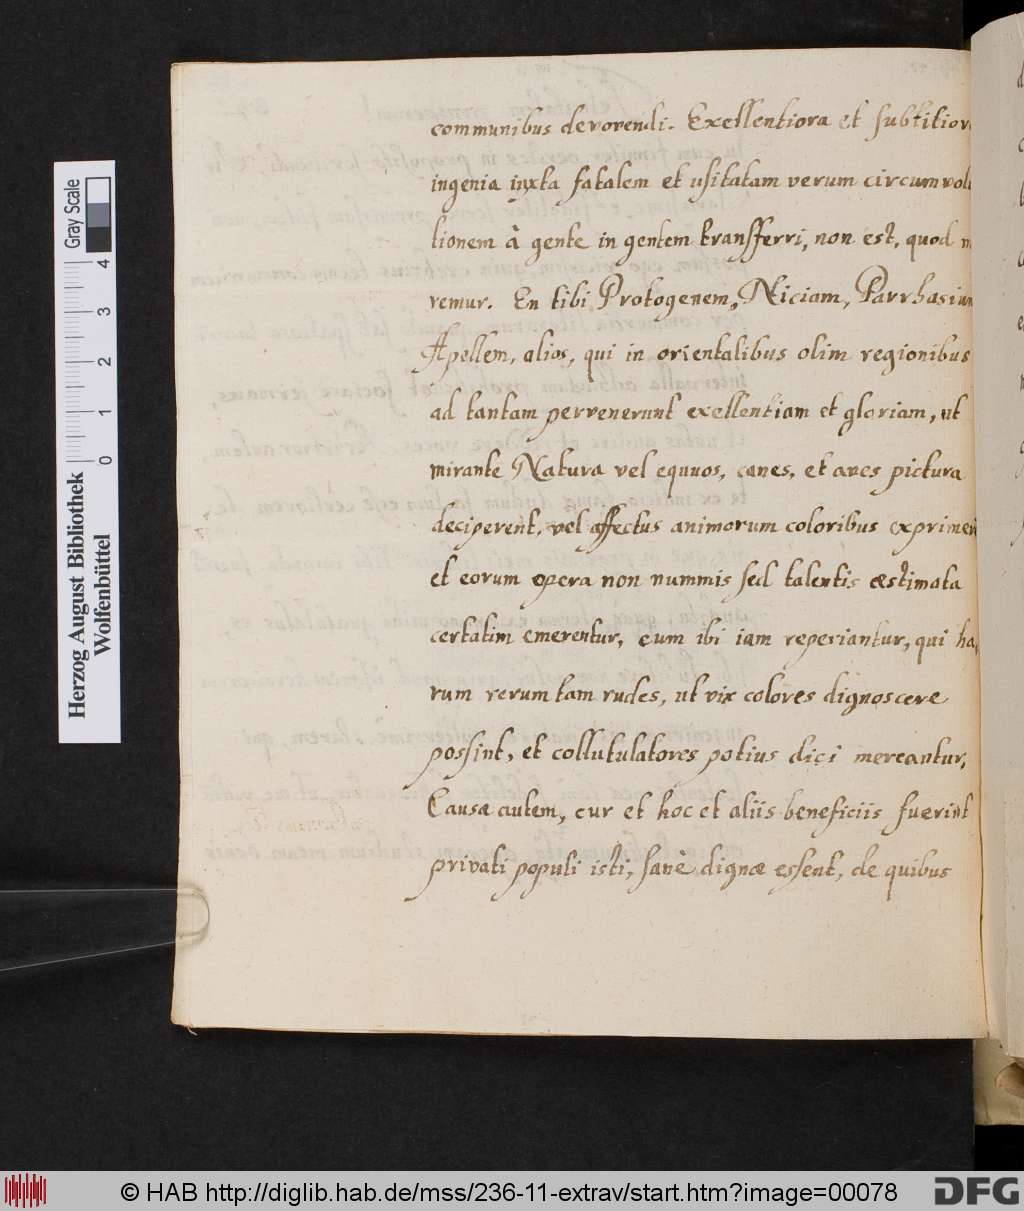 communibus devovendi. Exellentiora et subtilior
ingenia iuxta fatalem et usitatam rerum circumvolu
tionem à gente in gentem transfferri, non est, quod m
remur. En tibi Protogenem, Niciam, Parrhasium
Apellem, alios, qui in orientalibus olim regionibus
ad tantam pervenerunt exellentiam et gloriam, ut
mirante Natura vel equuos, canes, et aves pictura
deciperent, vel affectus animorum coloribus exprimer
et eorum opera non nummis sed talentis æstimata
certatim emerentur, cum ibi iam reperiantur, qui ha,
rum rerum tam rudes, ut vix colores dignoscere
possint, et collutulatores potius dici mereantur,
Causæ autem, cur et hoc et aliis beneficiis fuerint
privati populi isti, sanè dignæ essent, de quibus
Herzog August Bibliothek
Wolfenbüttel
Gray Scale
0 1 2 3 4
© HAB http://diglib.hab.de/mss/236-11-extrav/start.htm?image=00078
DFG